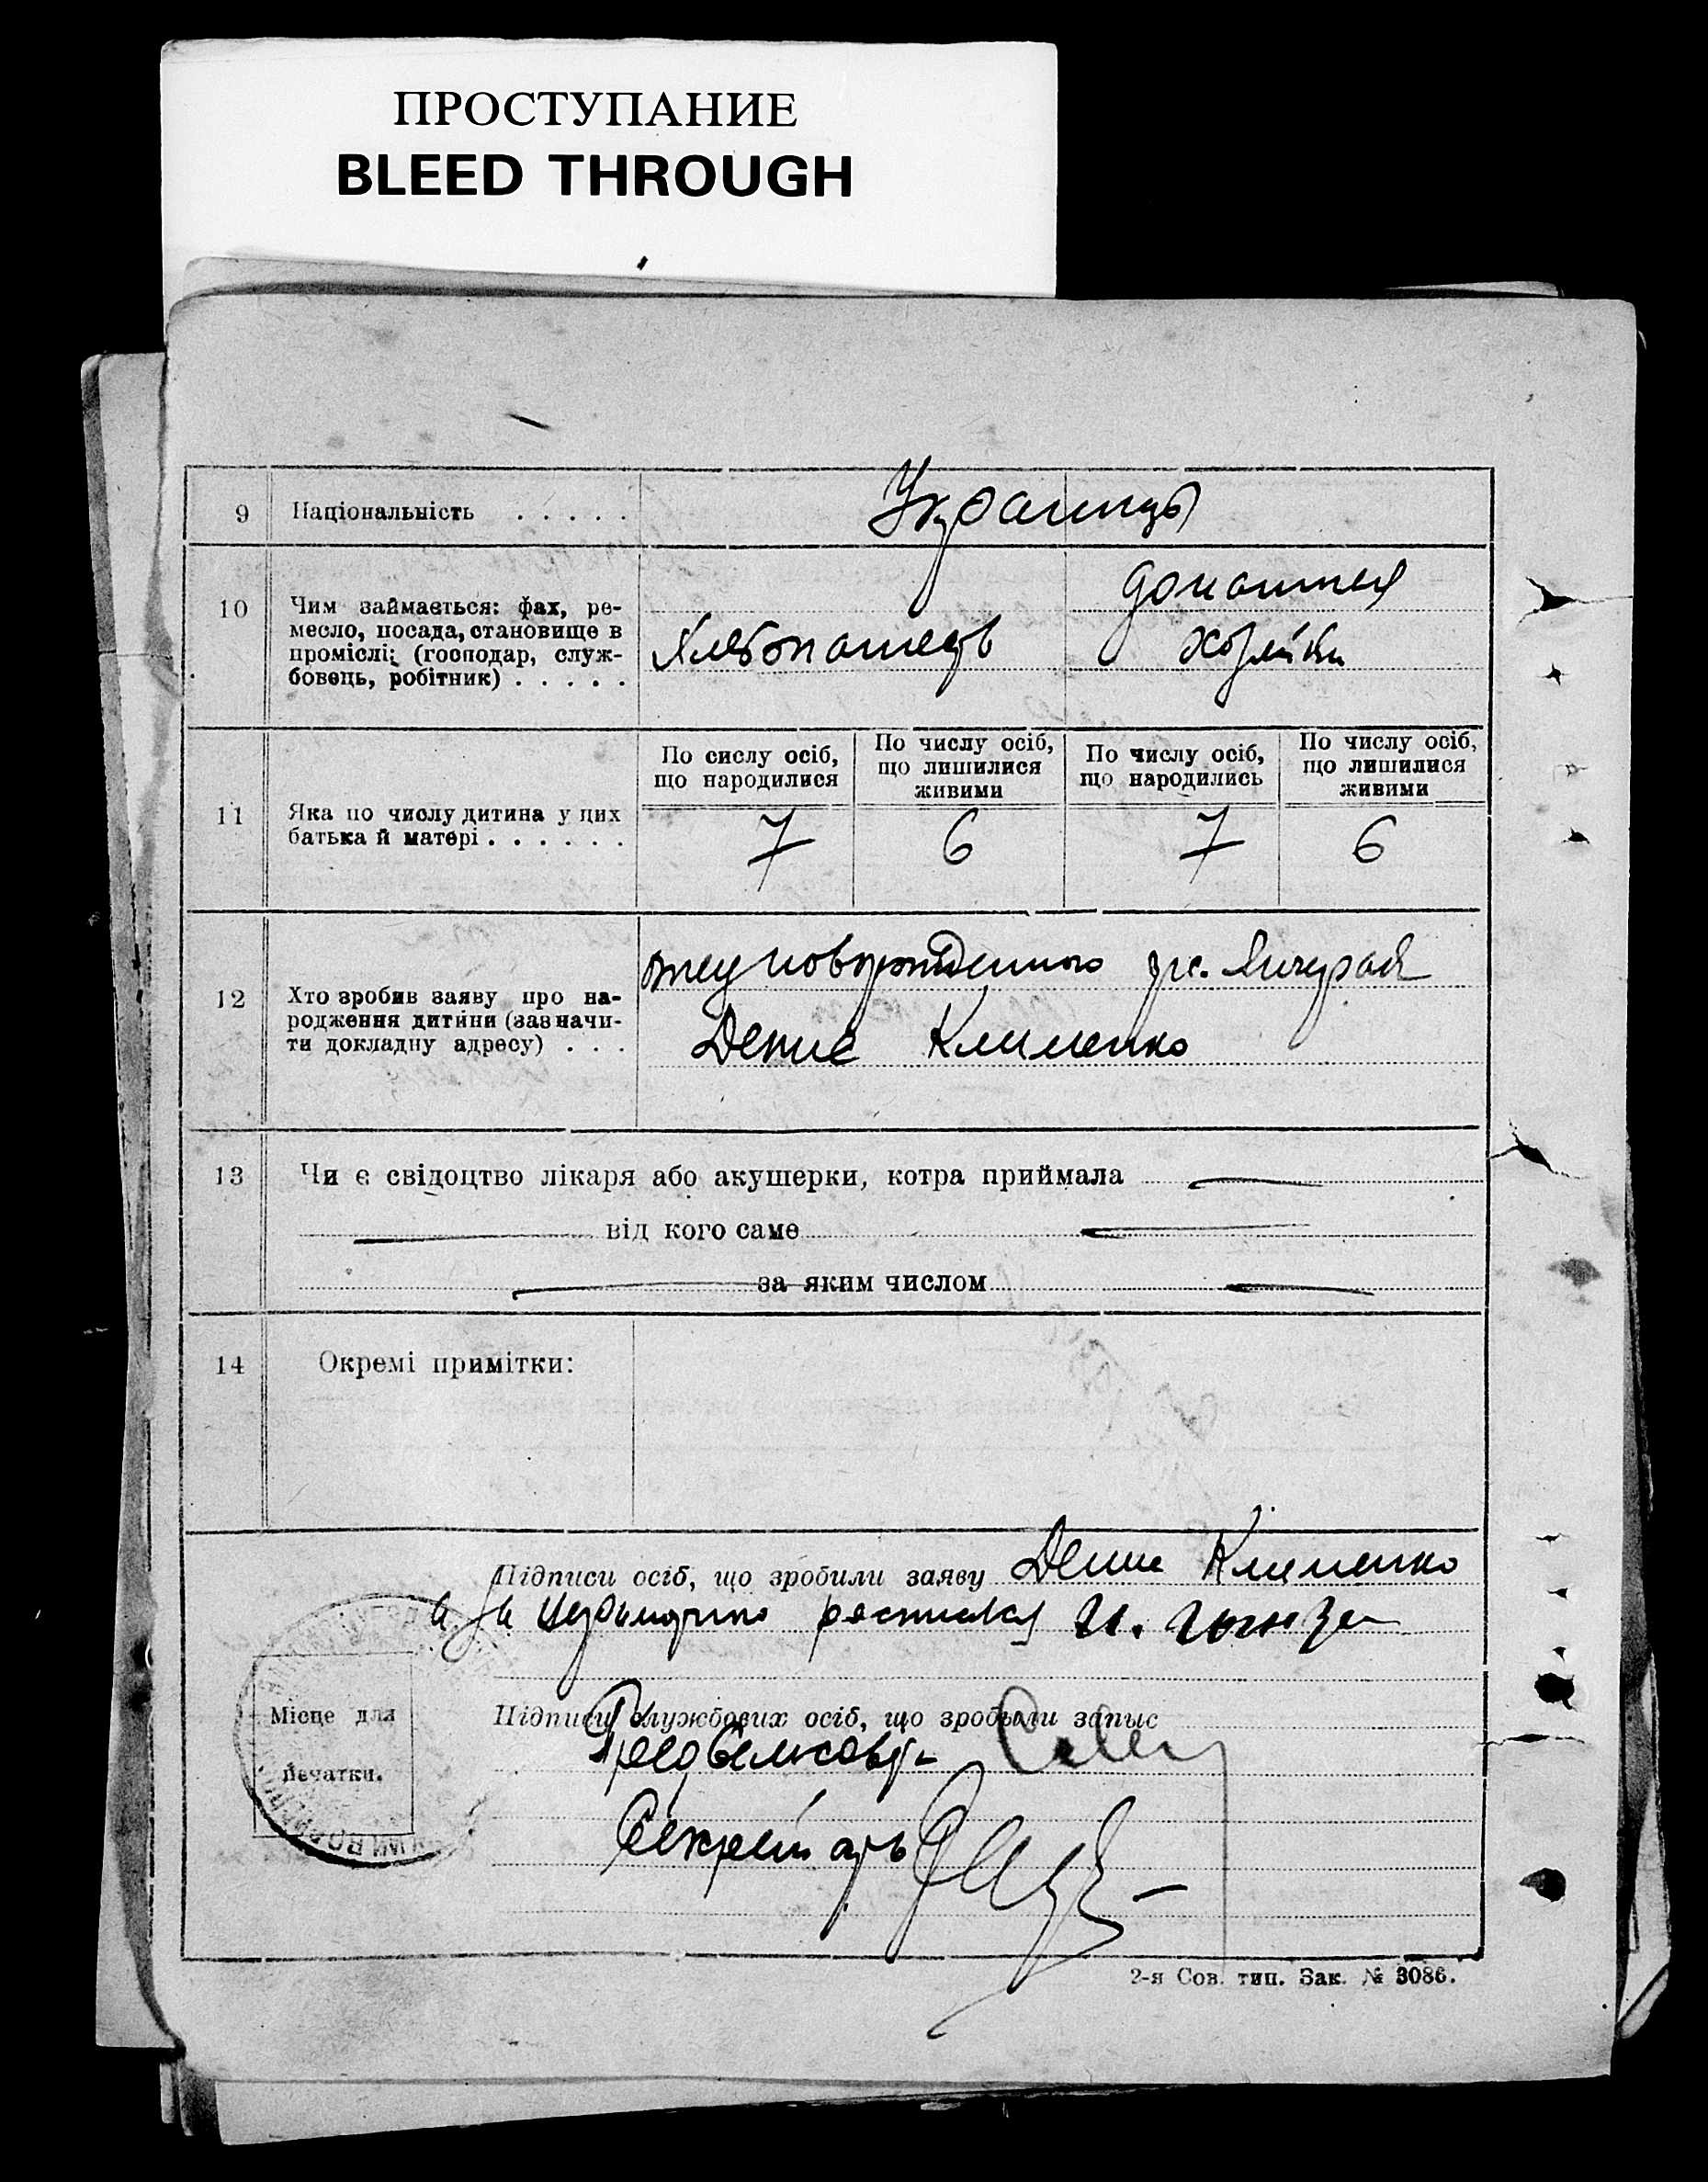 ПРОСТУПАНИЕ
BLEED THROUGH
9 Національність . . . . .
Украинцы
10 Чим займається: фах, ре-
месло, посада, становище в
проміслі; (господар, служ-
бовець, робітник) . . . . .
Хлебопашець
домашняя
хозяйка
11 Яка по числу дитина у цих
батька й матері . . . . . .
По сислу осіб,
що народилися
По числу осіб,
що лишилися
живими
По числу осіб,
що народились
По числу осіб,
що лишилися
живими
7 6 7 6
12 Хто зробив заяву про на-
родження дитини (зазначи-
ти докладну адресу) . . .
отец новорожденного гр.
Денис Клименко
13 Чи є свідоцтво лікаря або акушерки, котра приймала
від кого саме
за яким числом
14 Окремі примітки:
Підписи осіб, що зробили заяву Денис Клименко
а за расписался И.
Місце для
печатки.
Підписи службових осіб, що зробыли запыс
Секретарь
2-я Сов. тип. Зак. № 3086.